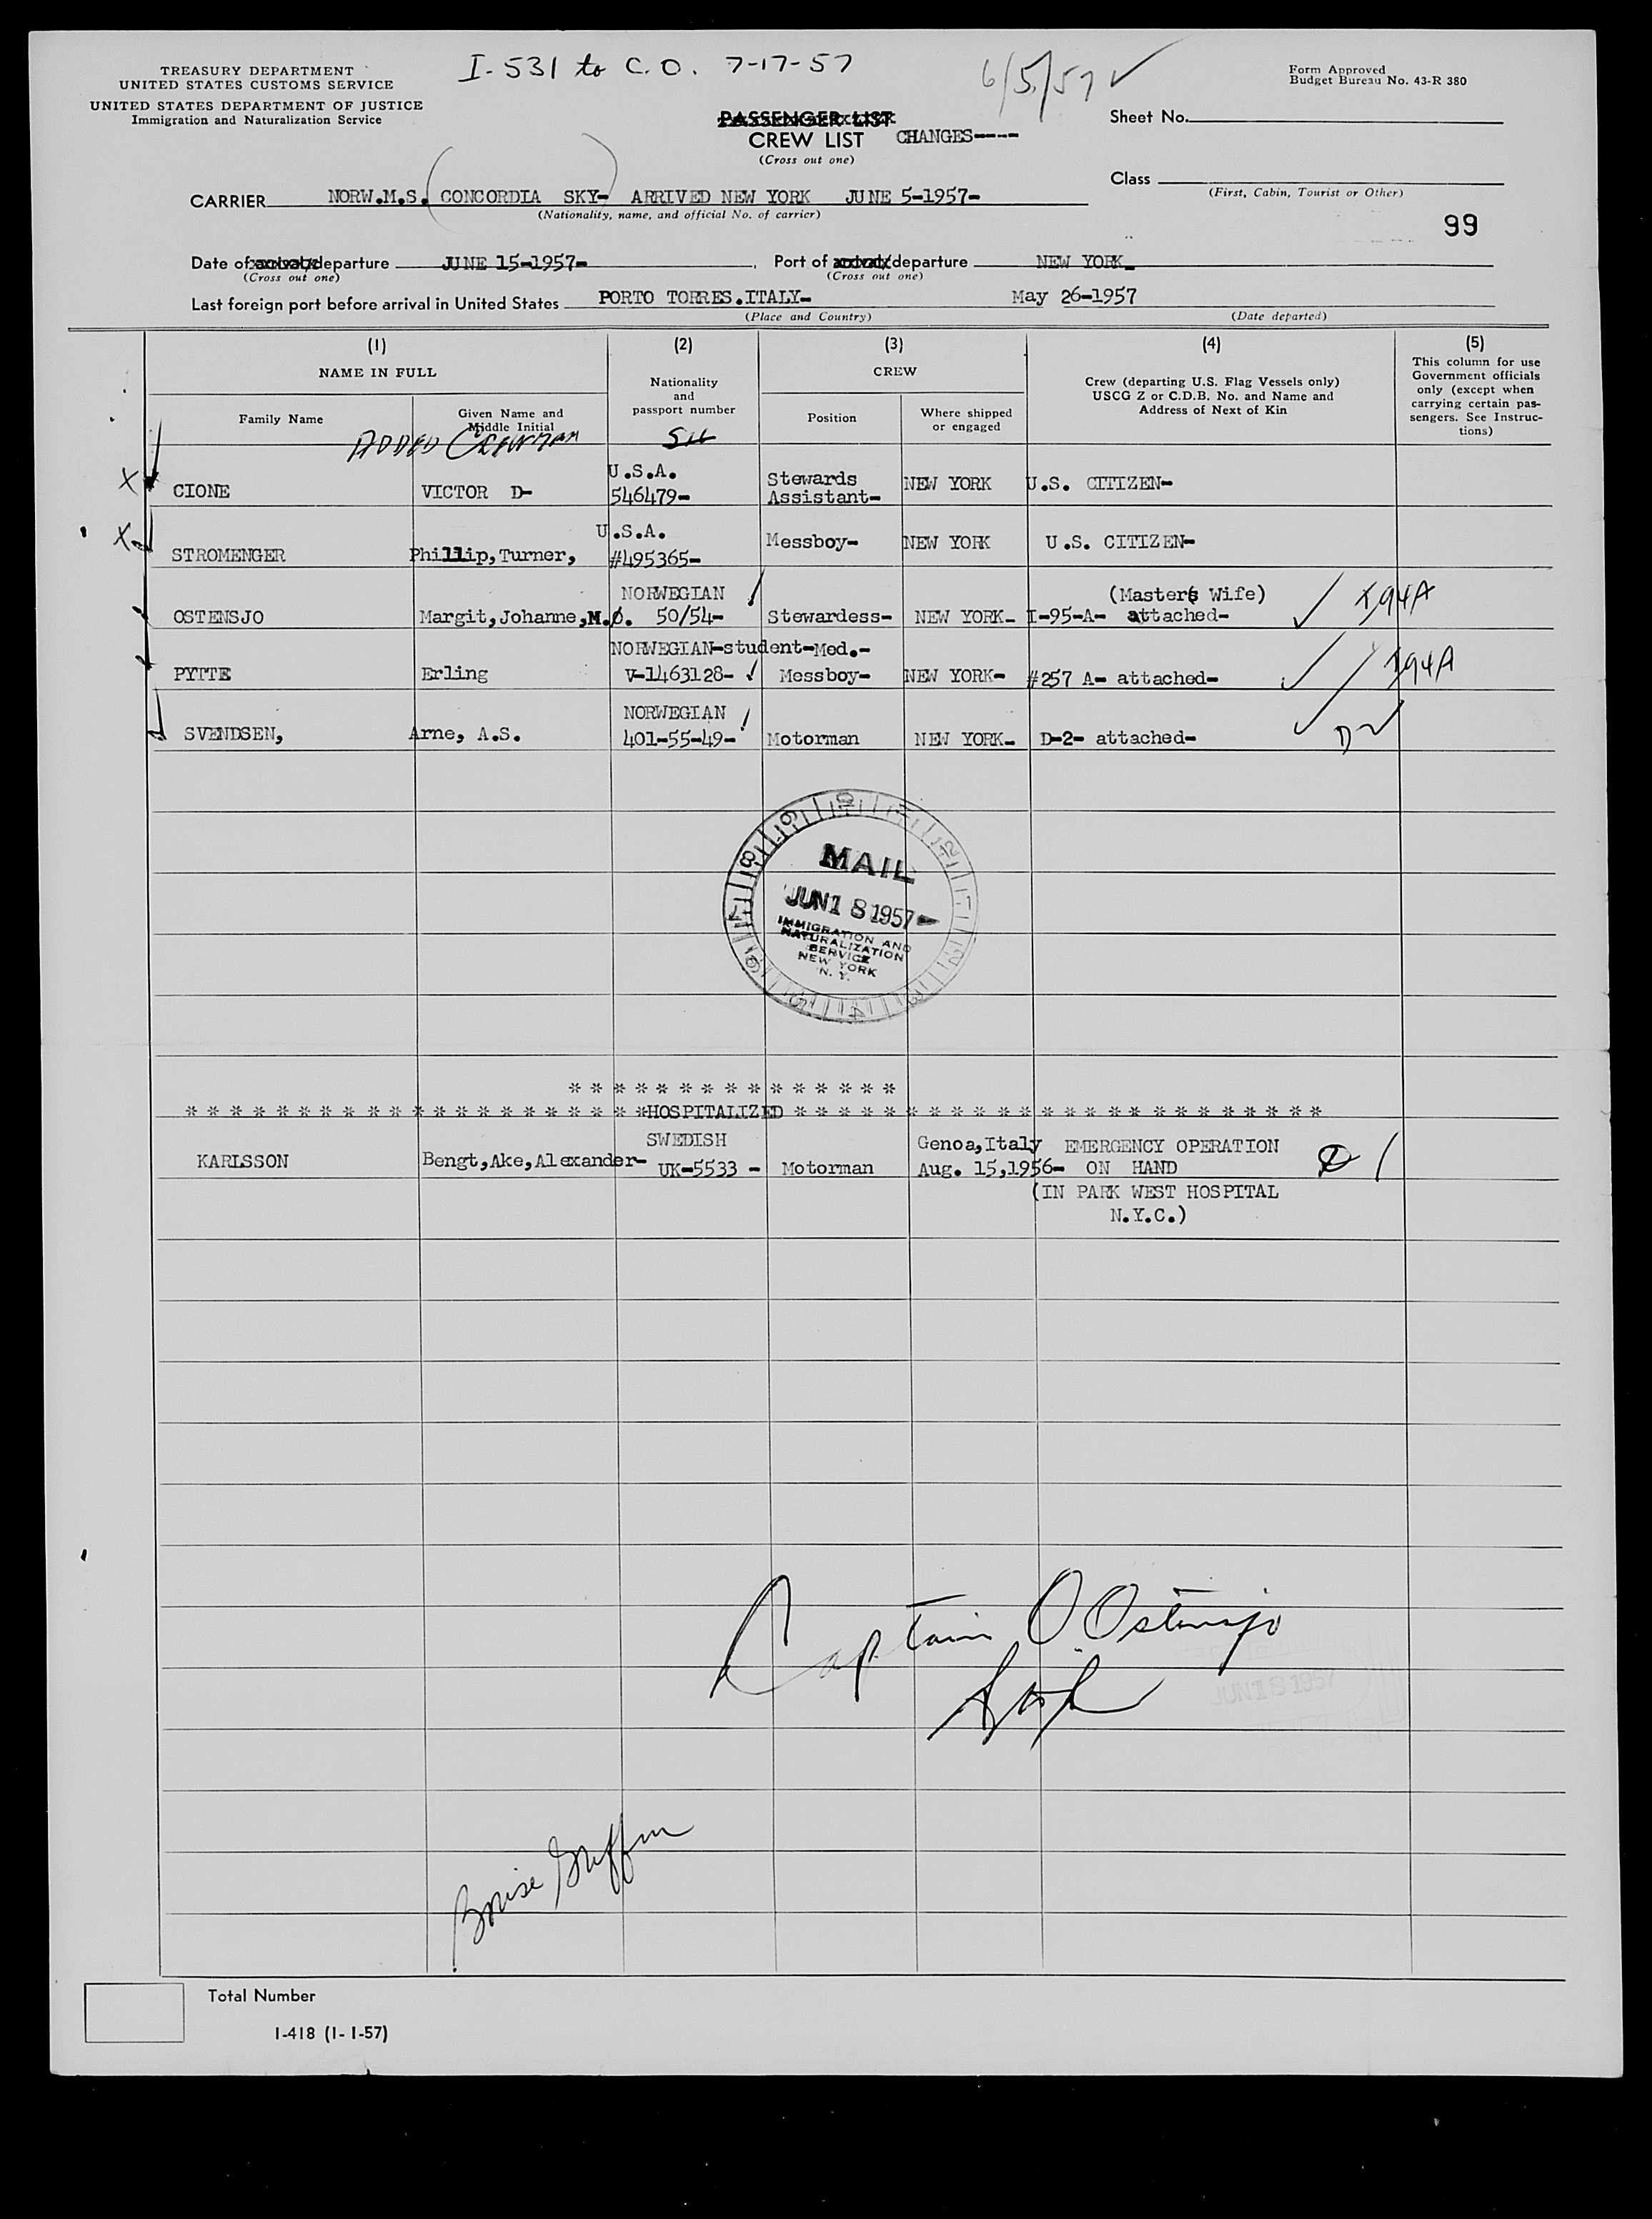 I-531 to C.O. 7-17-57
6/5/57 ✓
TREASURY DEPARTMENT
UNITED STATES CUSTOMS SERVICE
UNITED STATES DEPARTMENT OF JUSTICE
Immigration and Naturalization Service
Form Approved
Budget Bureau No. 43-R 380
PASSENGER LIST
CREW LIST CHANGES----
(Cross out one)
Sheet No.
Class
(First, Cabin, Tourist or Other)
CARRIER NORW.M.S. (CONCORDIA SKY-) ARRIVED NEW YORK JUNE 5-1957-
(Nationality, name, and official No. of carrier)
99
Date of arrival/departure JUNE 15-1957- Port of arrival/departure NEW YORK-
(Cross out one) (Cross out one)
Last foreign port before arrival in United States PORTO TORRES.ITALY- May 26-1957
(Place and Country) (Date departed)
(1) (2) (3) (4) (5)
NAME IN FULL
Nationality
and
passport number
CREW
Crew (departing U.S. Flag Vessels only)
USCG Z or C.D.B. No. and Name and
Address of Next of Kin
This column for use
Government officials
only (except when
carrying certain pas-
sengers. See Instruc-
tions)
Family Name
Given Name and
Middle Initial
Position
Where shipped
or engaged
ADDED CREWMAN
X CIONE VICTOR D- U.S.A. 546479- Stewards Assistant- NEW YORK U.S. CITIZEN-
X STROMENGER Phillip,Turner, U.S.A. #495365- Messboy- NEW YORK U.S. CITIZEN-
OSTENSJO Margit,Johanne,M.Ø. NORWEGIAN 50/54- Stewardess- NEW YORK- (Masters Wife) I-95-A- attached- ✓ I94A
PYTTE Erling NORWEGIAN-student-Med.- V-1463128- ✓ Messboy- NEW YORK- #257 A- attached- ✓ I94A
SVENDSEN, Arne, A.S. NORWEGIAN 401-55-49- Motorman NEW YORK- D-2- attached- ✓
MAIL
JUN 18 1957
IMMIGRATION AND
NATURALIZATION
SERVICE
NEW YORK
N. Y.
* * * * * * * * * * * * * * *
* * * * * * * * * * * * * * * * * * * * *HOSPITALIZED * * * * * * * * * * * * * * * * * * * * * * * *
KARLSSON Bengt,Ake,Alexander- SWEDISH UK-5533 - Motorman Genoa,Italy Aug. 15,1956- EMERGENCY OPERATION ON HAND
(IN PARK WEST HOSPITAL
N.Y.C.)
Captain O Ostensjo
JUN 18 1957
Griffin
Total Number
I-418 (1-1-57)